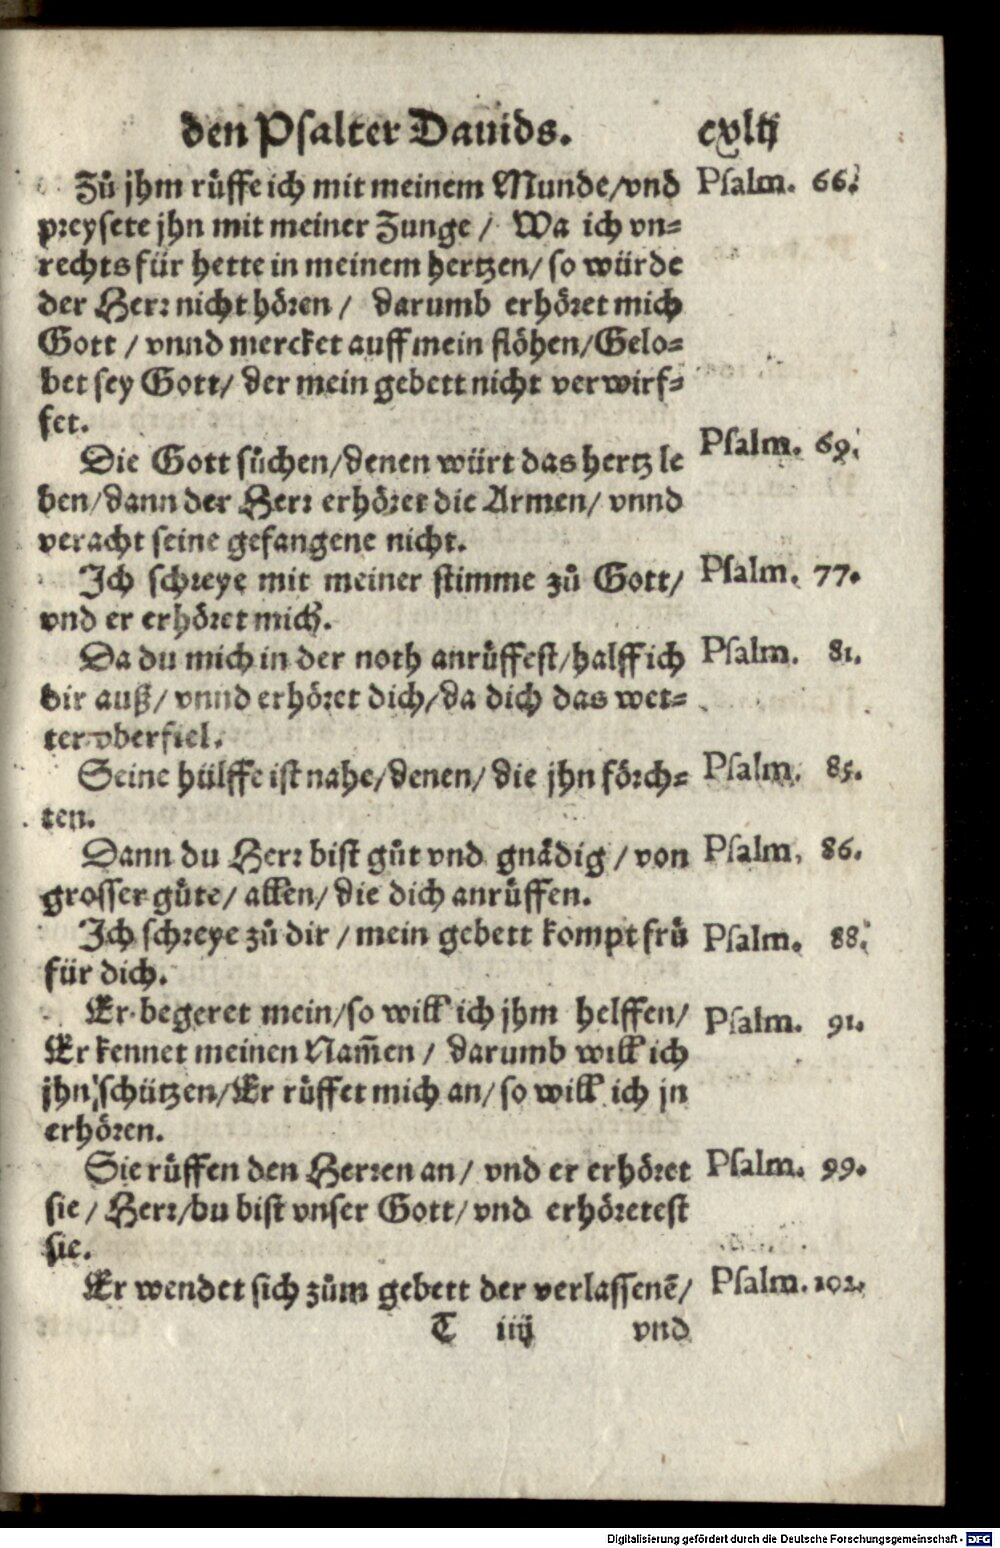 den Psalter Dauids. cxlij
Zů jhm růffe ich mit meinem Munde/vnd Psalm. 66.
preysete jhn mit meiner Zunge / Wa ich vn-
rechts für hette in meinem hertzen/ so würde
der Herr nicht hören / darumb erhöret mich
Gott / vnnd mercket auff mein flöhen/Gelo-
bet sey Gott/ der mein gebett nicht verwirf-
fet.
Die Gott sůchen/denen würt das hertz le Psalm. 69.
ben/dann der Herr erhöret die Armen/ vnnd
veracht seine gefangene nicht.
Ich schreye mit meiner stimme zů Gott/ Psalm. 77.
vnd er erhöret mich.
Da du mich in der noth anrůffest/halff ich Psalm. 81.
dir auß/ vnnd erhöret dich/da dich das wet-
ter vberfiel.
Seine hülffe ist nahe/denen/ die jhn förch- Psalm. 85.
ten.
Dann du Herr bist gůt vnd gnädig / von Psalm. 86.
grosser güte/ allen/ die dich anrůffen.
Ich schreye zů dir / mein gebett kompt frů Psalm. 88.
für dich.
Er begeret mein/so will ich jhm helffen/ Psalm. 91.
Er kennet meinen Nam̃en / darumb will ich
jhn schützen/Er růffet mich an/ so will ich jn
erhören.
Sie růffen den Herren an/ vnd er erhöret Psalm. 99.
sie / Herr/du bist vnser Gott/ vnd erhöretest
sie.
Er wendet sich zům gebett der verlassenẽ/ Psalm. 102.
T iiij vnd
Digitalisierung gefördert durch die Deutsche Forschungsgemeinschaft - DFG